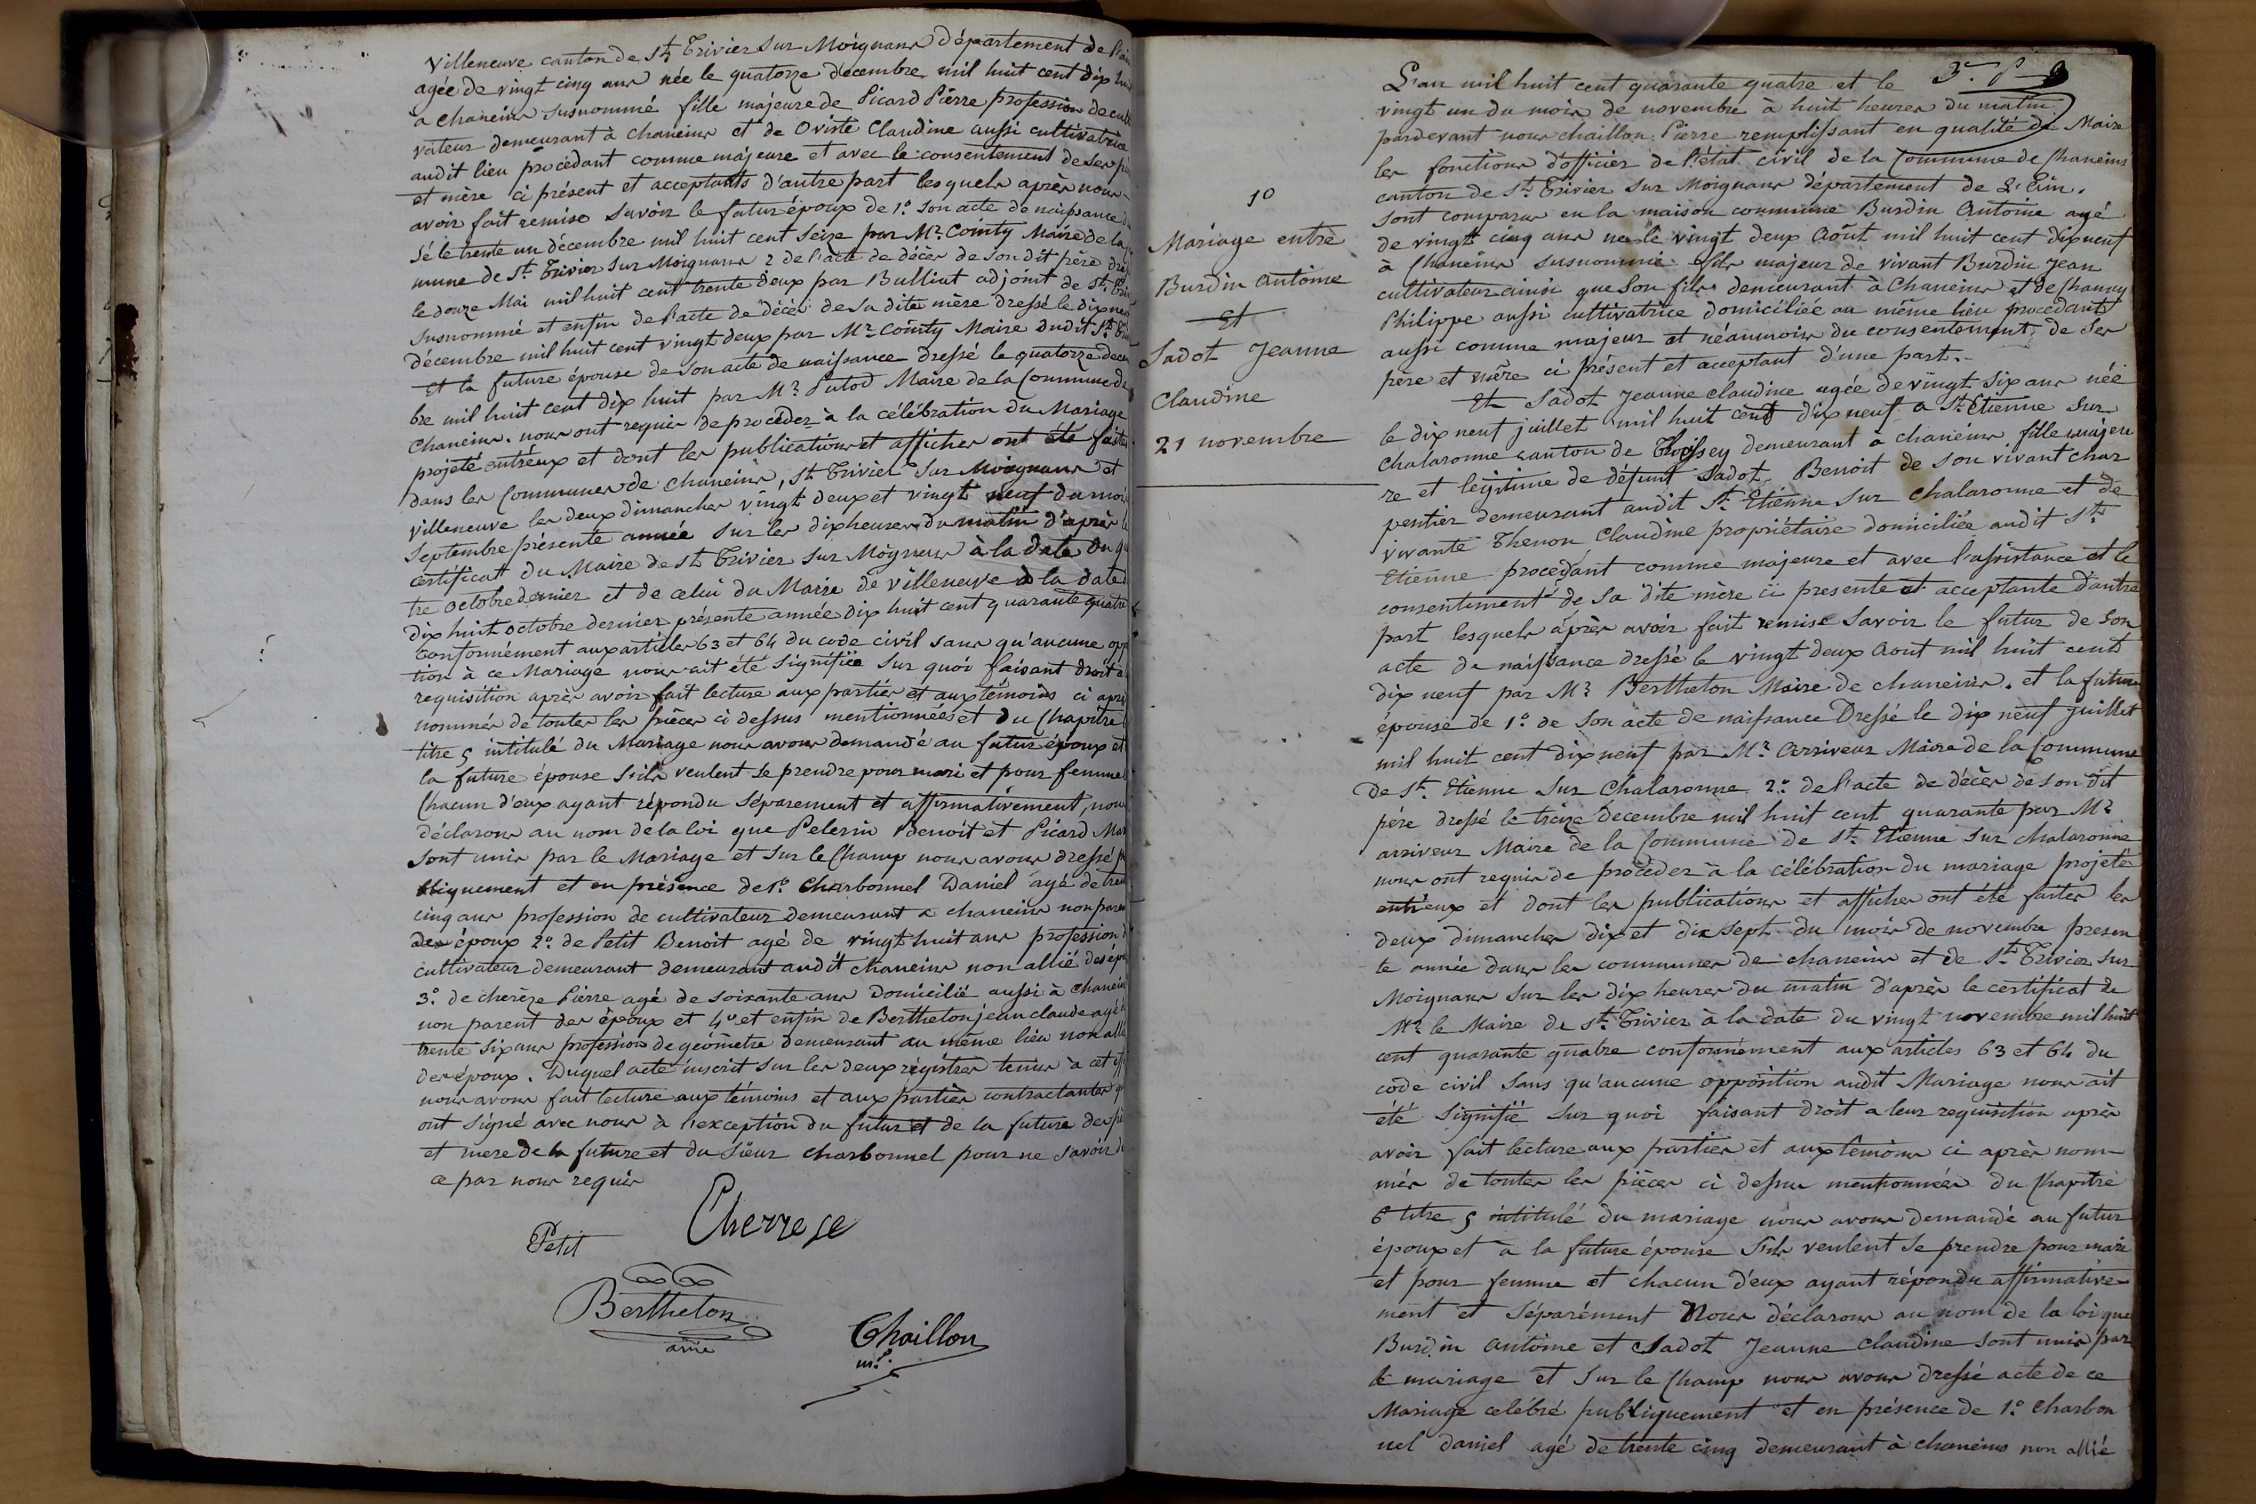 Villeneuve canton de St Trivier sur Moignans département de l'ain
agée de vingt cinq ans née le quatorze décembre mil huit cent dix huit
a chaneins susnommé fille majeure de Picard Pierre profession de culti
vateur demeurant à chaneins et de Oviste Claudine aussi cultivatrice
audit lieu procédant comme majeure et avec le consentement de ses père
et mère ci présent et acceptants d'autre part lesquels après nous
avoir fait remise savoir le futur époux de 1o son acte de naissance
sé le trente un décembre mil huit cent seize par Mr Cointy Maire de la
mune de St Trivier sur Moignans 2 de l'acte de décès de son dit père
le douze Mai mil huit cent trente deux par Bulliat adjoint de St
susnommé et enfin de l'acte de décès de sa dite mère dressé le dix neuf
décembre mil huit cent vingt deux par Mr Cointy Maire dudit St
Et la future épouse de son acte de naissance dressé le quatorze decem
bre mil huit cent dix huit par Mr Putod Maire de la Commune de
Chaneins. nous ont requis de procéder à la célébration du Mariage
projeté entreux et dont les publications et affiches ont été faites
dans les Communes de Chaneins, St Trivier sur Moignans et
Villeneuve les deux dimanches vingt deux et vingt neuf du mois
Septembre présente année sur les dix heures du matin d'après le
certificat du Maire de St Trivier sur Mognans à la date du qua
tre octobre dernier et de celui du Maire de Villeneuve à la date
dix huit octobre dernier présente année dix huit cent quarante quatre
Conformément aux articles 63 et 64 du code civil sans qu'aucune oppo
tion à ce Mariage nous ait été signifiée sur quoi faisant droit à
requisition après avoir fait lecture aux parties et aux témoins ci après
nommés de toutes les pièces ci dessus mentionnées et du Chapitre
titre 5 intitulé du Mariage nous avons demandé au futur époux et
la future épouse s'ils veulent se prendre pour mari et pour femme
Chacun d'eux ayant répondu séparement et affirmativement, nous
déclarons au nom de la loi que Pelerin Benoit et Picard Mar
sont unis par le Mariage et sur le Champ nous avons dressé
bliquement et en présence de 1o Charbonnel Daniel agé de trente
cinq ans profession de cultivateur demeurant a chaneins non parent
des époux 2o de Petit Benoit agé de vingt huit ans profession de
cultivateur demeurant demeurant audit chaneins non allié des époux
3o de cherèze Pierre agé de soixante ans domicilié aussi à chaneins
non parent des époux et 4o et enfin de Bertheton jean claude agé de
trente six ans profession de géomètre demeurant au même lieu non allié
des époux. Duquel acte inscrit sur les deux régistres tenus à cet effet
nous avons fait lecture aux témoins et aux parties contractantes qui
ont signé avec nous à l'exception du futur et de la future des père
et mere de la future et du sieur Charbonnel pour ne savoir de
ce par nous requis
Cherreze
Petit
Bertheton
Chaillon
m.e
3e P 9
L'an mil huit cent quarante quatre et le
vingt un du mois de novembre à huit heures du matin
pardevant nous chaillon Pierre remplissant en qualité de Maire
les fonctions d'officier de l'état civil de la Commune de Chaneins
canton de St Trivier sur Moignans département de L'Ain.
10
Mariage entre
Burdin Antoine
Et
Sadot Jeanne
Claudine
21 novembre
Sont comparus en la maison commune Burdin Antoine agé
de vingt cinq ans né le vingt deux Août mil huit cent dix neuf
à Chaneins susnommé fils majeur de vivant Burdin Jean
cultivateur ainsi que son fils demeurant à Chaneins et de Channy
Philippe aussi cultivatrice domiciliée au même lieu procédant
aussi comme majeur et néanmoins du consentement de ses
père et mère ci présent et acceptant d'une part.
Et Sadot Jeanne Claudine agée de vingt six ans née
le dix neuf juillet mil huit cent dix neuf a St Etienne sur
Chalaronne canton de Thoissey demeurant à chaneins fille majeu
re et légitime de défunt Sadot Benoit de son vivant char
pentier demeurant audit St Etienne sur chalaronne et de
vivante Thenon Claudine propriétaire domiciliée audit St
Etienne procédant comme majeure et avec l'assistance et le
consentement de sa dite mère ci presente et acceptante d'autre
part lesquels après avoir fait remise savoir le futur de son
acte de naissance dressé le vingt deux Aout mil huit cent
dix neuf par Mr Bertheton Maire de chaneins. et la future
épouse de 1o de son acte de naissance Dressé le dix neuf juillet
mil huit cent dix neuf par Mr Arriveur Maire de la Commune
de St Etienne sur Chalaronne 2o de l'acte de décès de son dit
père dressé le treize Décembre mil huit cent quarante par Mr
arriveur Maire de la Commune de St Etienne sur chalaronne
nous ont requis de procèder à la célébration du mariage projeté
entr'eux et dont les publications et affiches ont été faites les
deux dimanches dix et dix sept du mois de novembre presen
te année dans les communes de chaneins et de St Trivier sur
Moignans sur les dix heures du matin d'après le certificat de
Mr le Maire de St Trivier à la date du vingt novembre mil huit
cent quarante quatre conformément aux articles 63 et 64 du
code civil sans qu'aucune opposition audit Mariage nous ait
été signifié sur quoi faisant droit a leur requisition après
avoir fait lecture aux parties et aux témoins ci après nom-
més de toutes les pièces ci dessus mentionnées du Chapitre
6 titre 5 intitulé du mariage nous avons demandé au futur
époux et à la future épouse s'ils veulent se prendre pour mari
et pour femme et chacun d'eux ayant répondu affirmative-
ment et séparément Nous déclarons au nom de la loi que
Burdin Antoine et Sadot Jeanne Claudine sont unis par
le mariage et sur le Champ nous avons dressé acte de ce
Mariage celébré publiquement et en présence de 1o Charbon
nel daniel agé de trente cinq demeurant à chaneins non allié